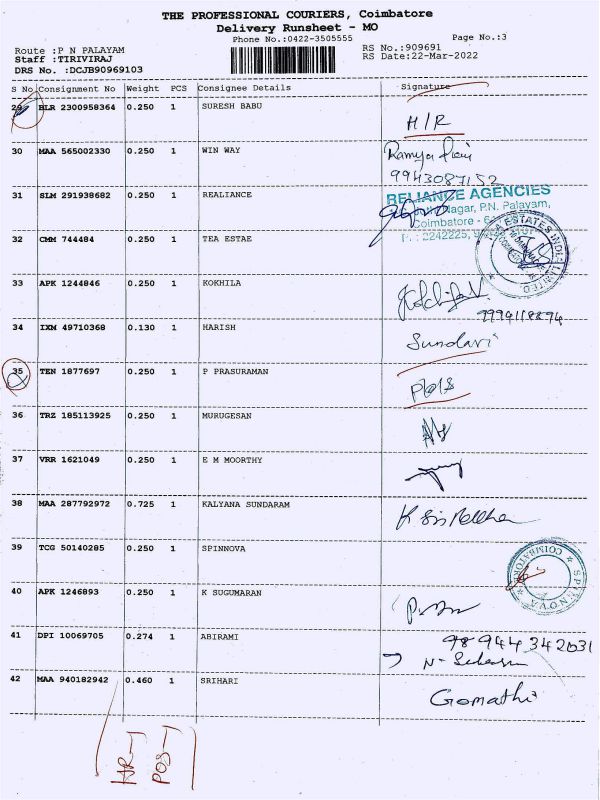 THE PROFESSIONAL COURIERS, Coimbatore
Delivery Runsheet - MO
Phone No.:0422-3505555
Page No.:3
Route :P N PALAYAM
Staff :TIRIVIRAJ
DRS No. :DCJB90969103
RS No.:909691
RS Date:22-Mar-2022
S No Consignment No Weight PCS Consignee Details Signature
29 BLR 2300958364 0.250 1 SURESH BABU
H/R
30 MAA 565002330 0.250 1 WIN WAY
9943087152
31 SLM 291938682 0.250 1 REALIANCE
RELIANCE AGENCIES
Nagar, P.N. Palayam,
Coimbatore - 6
2242225,
32 CMM 744484 0.250 1 TEA ESTAE
ESTATES INDIA LIMITED
33 APK 1244846 0.250 1 KOKHILA
9994118894
34 IXM 49710368 0.130 1 HARISH
Sundari
35 TEN 1877697 0.250 1 P PRASURAMAN
36 TRZ 185113925 0.250 1 MURUGESAN
37 VRR 1621049 0.250 1 E M MOORTHY
38 MAA 287792972 0.725 1 KALYANA SUNDARAM
39 TCG 50140285 0.250 1 SPINNOVA
SPINNOVA * COIMBATORE *
40 APK 1246893 0.250 1 K SUGUMARAN
41 DPI 10069705 0.274 1 ABIRAMI
98 944 342031
42 MAA 940182942 0.460 1 SRIHARI
Gomathi
H/R-1
POS-1